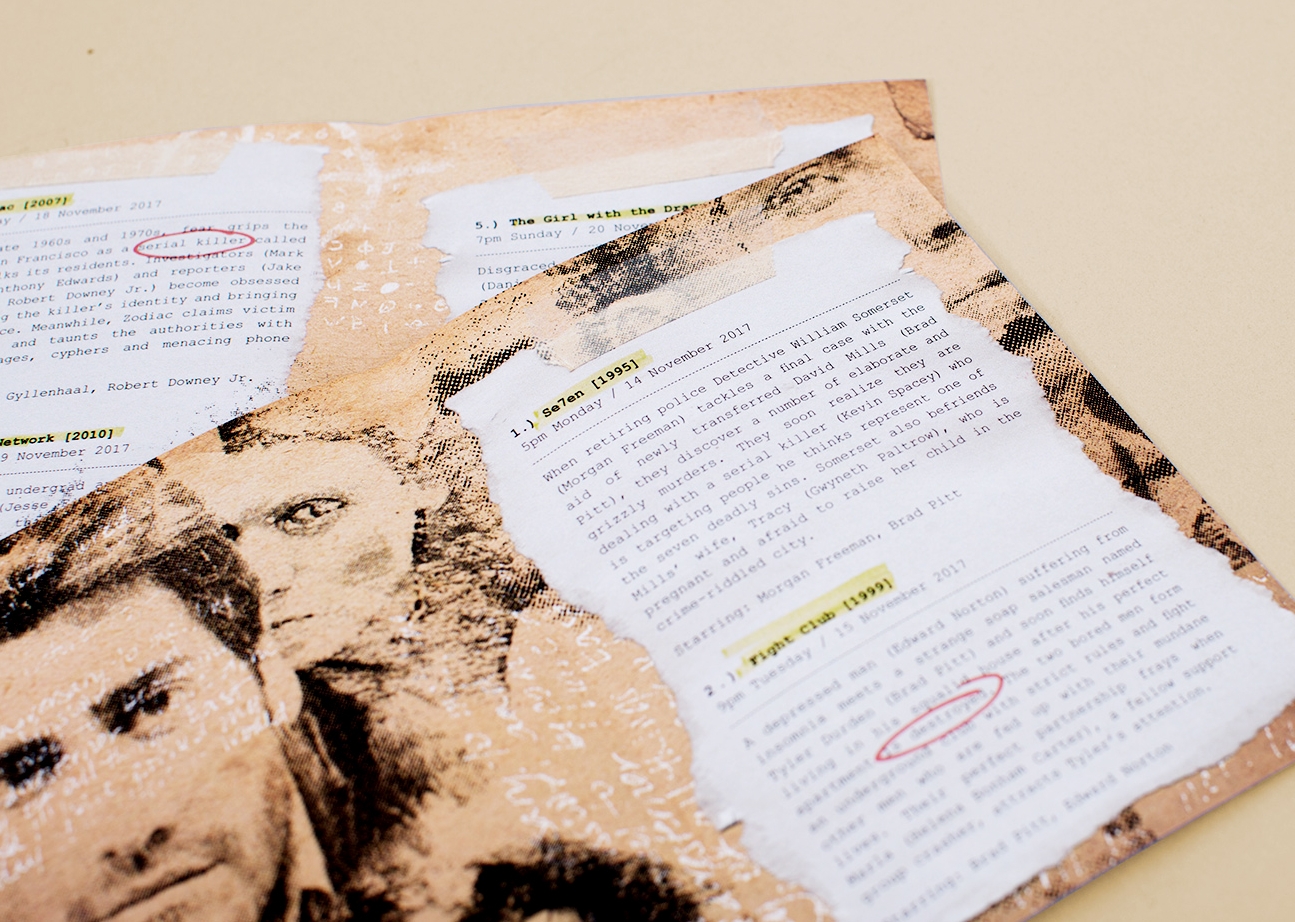 ac [2007]
ay / 18 November 2017
ate 1960s and 1970s, fear grips the
n Francisco as a serial killer called
lks its residents. Investigators (Mark
nthony Edwards) and reporters (Jake
Robert Downey Jr.) become obsessed
ng the killer's identity and bringing
ce. Meanwhile, Zodiac claims victim
and taunts the authorities with
ages, cyphers and menacing phone
Gyllenhaal, Robert Downey Jr.
Network [2010]
9 November 2017
undergrad
(Jesse
5.) The Girl with the Drag
7pm Sunday / 20 Nove
Disgraced
(Dan
1.) Se7en [1995]
5pm Monday / 14 November 2017
When retiring police Detective William Somerset
(Morgan Freeman) tackles a final case with the
aid of newly transferred David Mills (Brad
Pitt), they discover a number of elaborate and
grizzly murders. They soon realize they are
dealing with a serial killer (Kevin Spacey) who
is targeting people he thinks represent one of
the seven deadly sins. Somerset also befriends
Mills' wife, Tracy (Gwyneth Paltrow), who is
pregnant and afraid to raise her child in the
crime-riddled city.
Starring: Morgan Freeman, Brad Pitt
2.) Fight Club [1999]
9pm Tuesday / 15 November 2017
A depressed man (Edward Norton) suffering from
insomnia meets a strange soap salesman named
Tyler Durden (Brad Pitt) and soon finds himself
living in his squalid house after his perfect
apartment is destroyed. The two bored men form
an underground club with strict rules and fight
other men who are fed up with their mundane
lives. Their perfect partnership frays when
Marla (Helena Bonham Carter), a fellow support
group crasher, attracts Tyler's attention.
Starring: Brad Pitt, Edward Norton